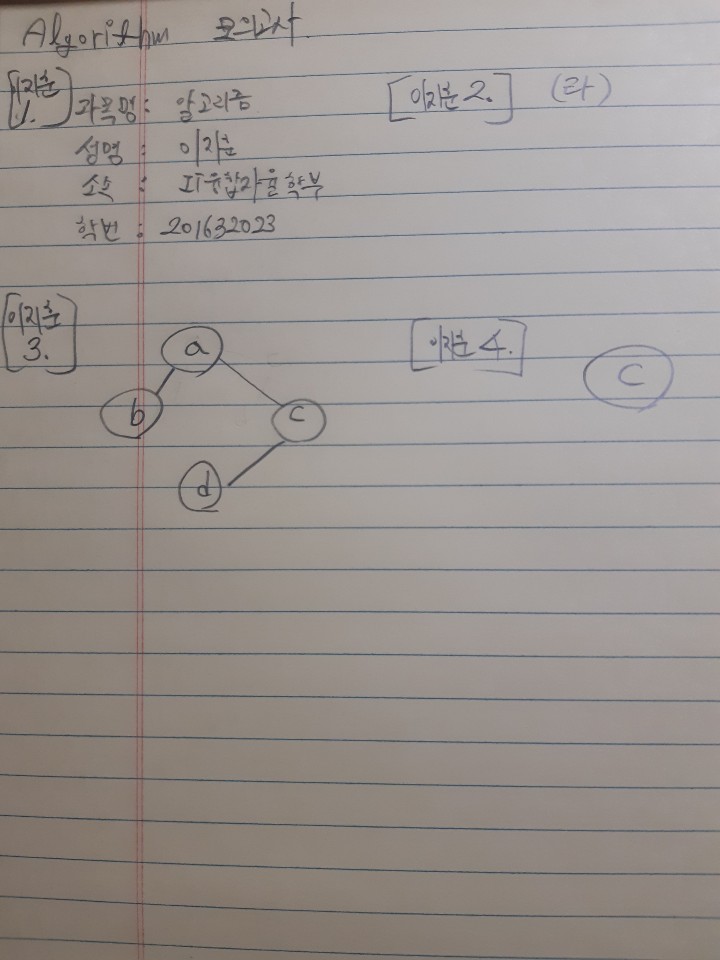 Algorithm 모의고사.
[이지훈 1.]
과목명 : 알고리즘
성명 : 이지훈
소속 : IT융합자율학부
학번 : 201632023
[이지훈 2.] (라)
[이지훈 3.]
a
b
c
d
[이지훈 4.]
C